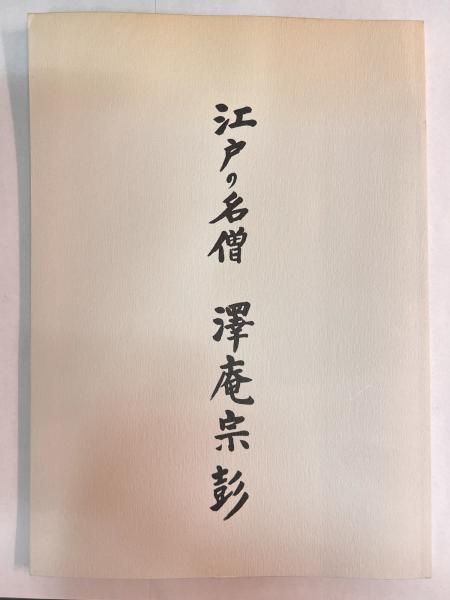 江戸の名僧 澤庵宗彭